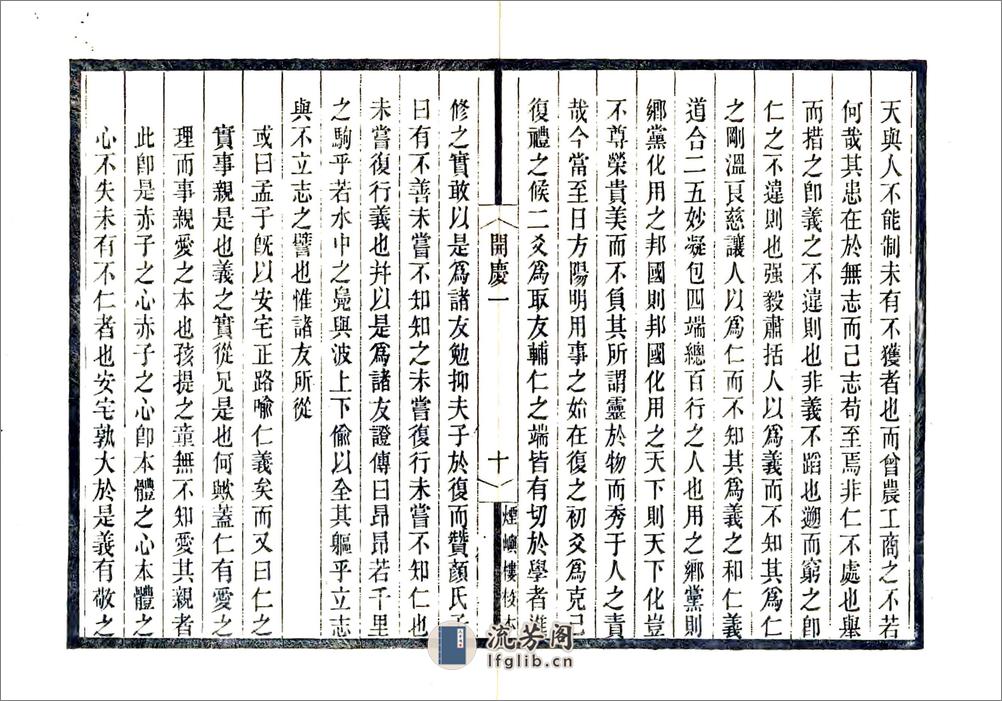 天與人不能制未有不獲者也而曾農工商之不若
何哉其患在於無志而已志苟至焉非仁不處也舉
而措之卽義之不違則也非義不蹈也遡而窮之卽
仁之不違則也强毅肅括人以爲義而不知其爲仁
之剛溫良慈讓人以爲仁而不知其爲義之和仁義
道合二五妙凝包四端總百行之人也用之鄉黨則
鄉黨化用之邦國則邦國化用之天下則天下化豈
不尊榮貴美而不負其所謂靈於物而秀于人之責
哉今當至日方陽明用事之始在復之初爻爲克己
復禮之候二爻爲取友輔仁之端皆有切於學者進
開慶一
十
煙嶼樓校本
修之實敢以是爲諸友勉抑夫子於復而贊顏氏子
曰有不善未嘗不知知之未嘗復行未嘗不知仁也
未嘗復行義也幷以是爲諸友證傳曰昂昂若千里
之駒乎若水中之鳧與波上下偷以全其軀乎立志
與不立志之譬也惟諸友所從
或曰孟子旣以安宅正路喻仁義矣而又曰仁之
實事親是也義之實從兄是也何歟蓋仁有愛之
理而事親愛之本也孩提之童無不知愛其親者
此卽是赤子之心赤子之心卽本體之心本體之
心不失未有不仁者也安宅孰大於是義有敬之
流芳阁
lfglib.cn